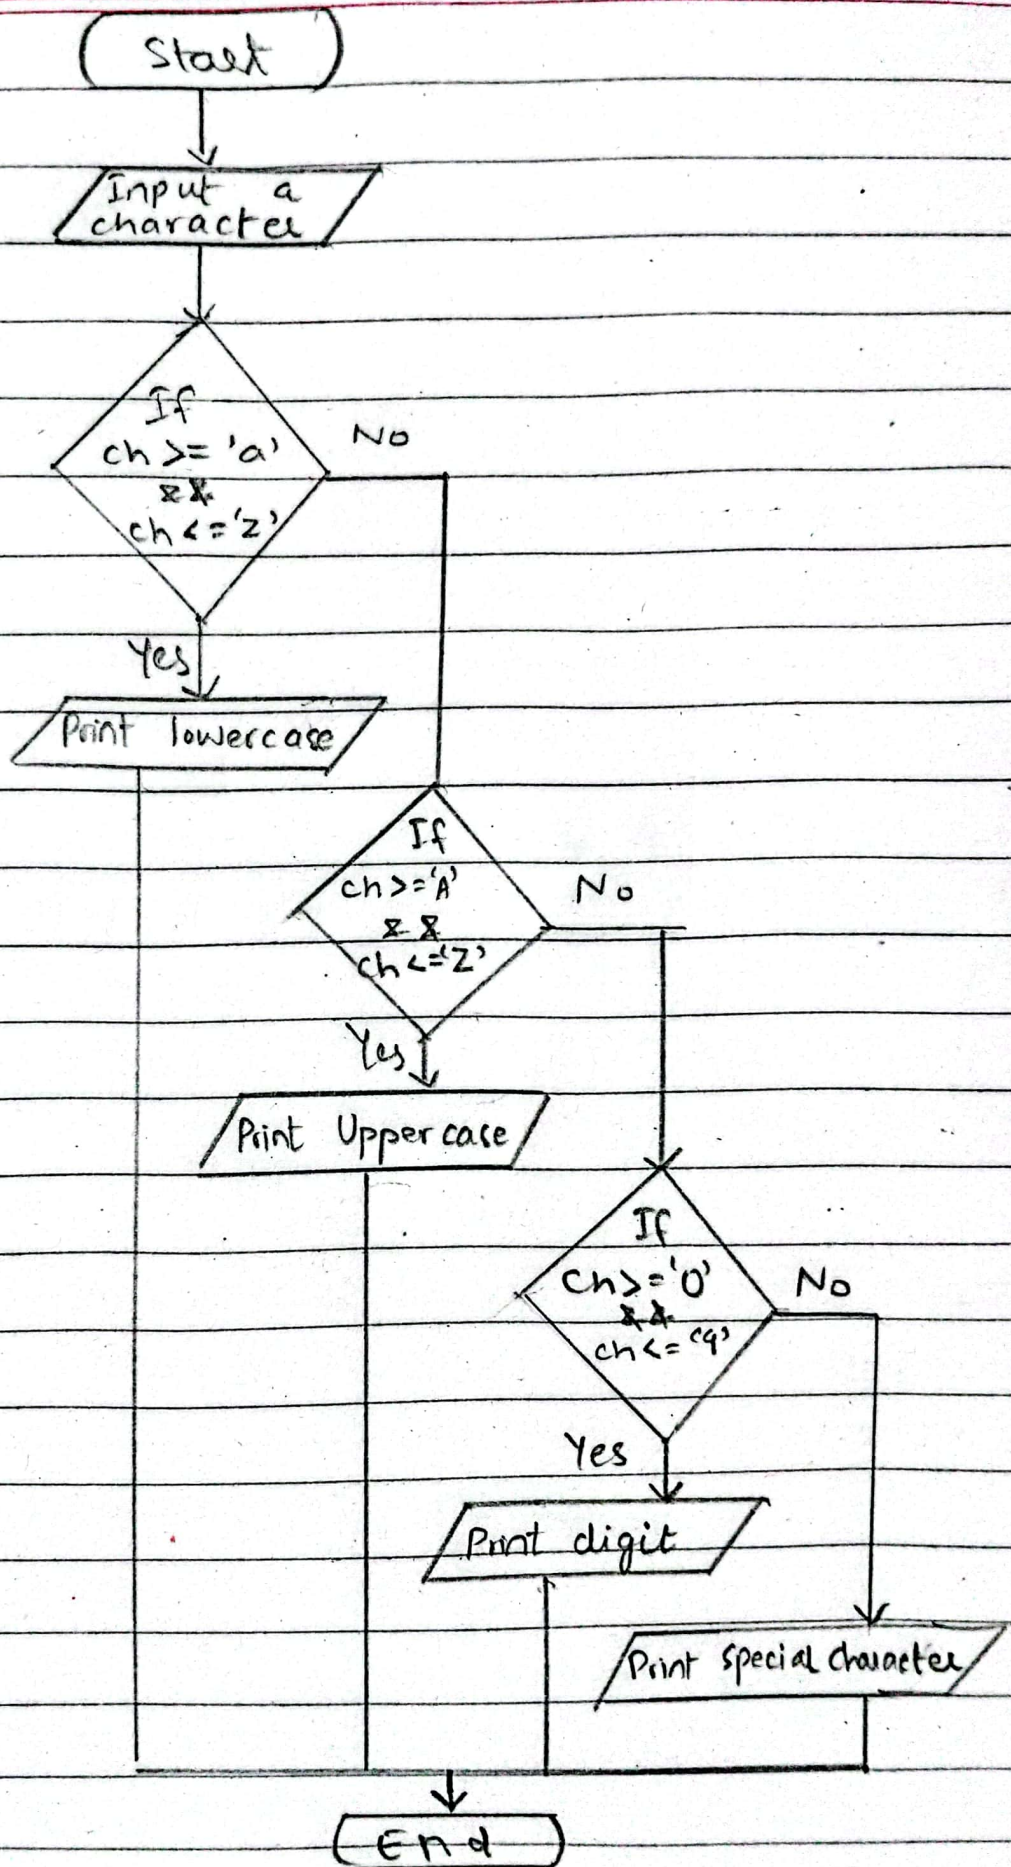 Start
Input a
character
If
ch >= 'a'
&&
ch <= 'z'
No
Yes
Print lowercase
If
ch >= 'A'
&&
ch <= 'Z'
No
Yes
Print Uppercase
If
Ch >= '0'
&&
ch <= '9'
No
Yes
Print digit
Print special character
End